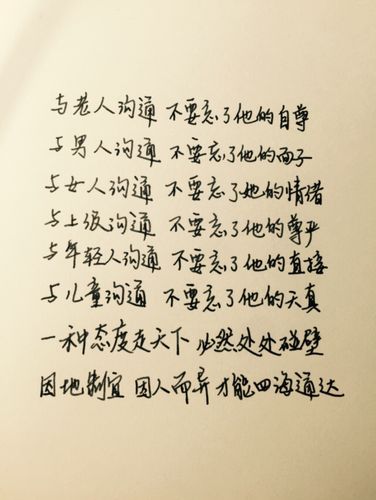 与老人沟通 不要忘了他的自尊
与男人沟通 不要忘了他的面子
与女人沟通 不要忘了她的情绪
与上级沟通 不要忘了他的尊严
与年轻人沟通 不要忘了他的直接
与儿童沟通 不要忘了他的天真
一种态度走天下 必然处处碰壁
因地制宜 因人而异 才能四海通达